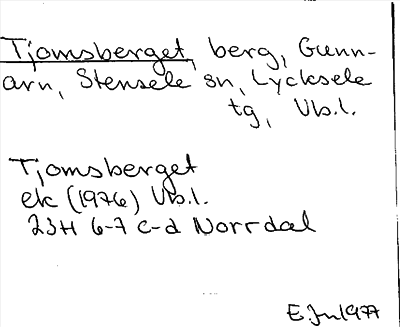 Tjomsberget, berg, Gunn-
arn, Stensele sn, Lycksele
tg, Vb.l.
Tjomsberget
ek (1976) Vb.l.
23H 6-7 c-d Norrdal
1977